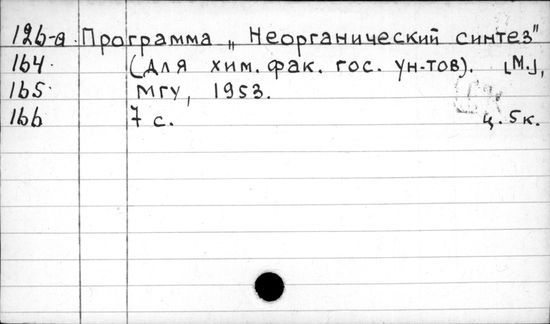 126-а. Программа „Неорганический синтез"
164. (для хим. фак. гос. ун-тов). [М.],
165. МГУ, 1953.
166 7 с. ц. 5к.